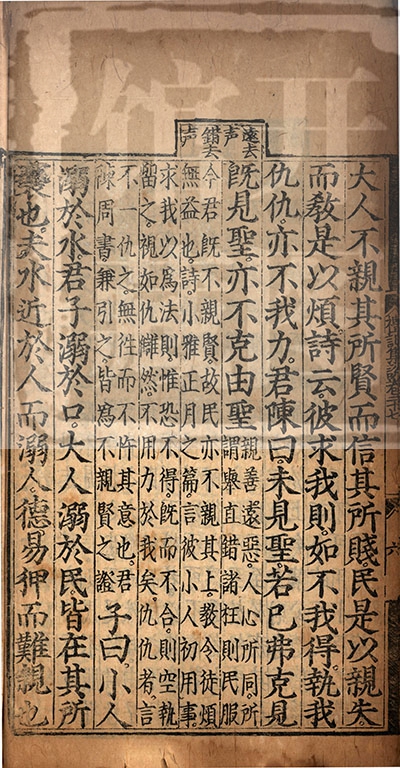 遠去声
錯去声
大人不親其所賢。而信其所賤。民是以親失
而教是以煩。詩云。彼求我則。如不我得。執我
仇仇。亦不我力。君陳曰。未見聖。若已弗克見
旣見聖。亦不克由聖
親善遠惡。人心所同。所
謂舉直錯諸枉則民服
今君旣不親賢。故民亦不親其上。教令徒煩
無益也。詩。小雅正月之篇。言彼小人初用事。
求我以爲法則。惟恐不得。旣而不合。則空執
留之。視如仇讎然。不用力於我矣。仇仇者。言
不一仇之。無徃而不忤其意也。君
陳周書兼引之。皆爲不親賢之證
子曰。小人
溺於水。君子溺於口。大人溺於民。皆在其所
褻也。夫水近於人而溺人。德易狎而難親也